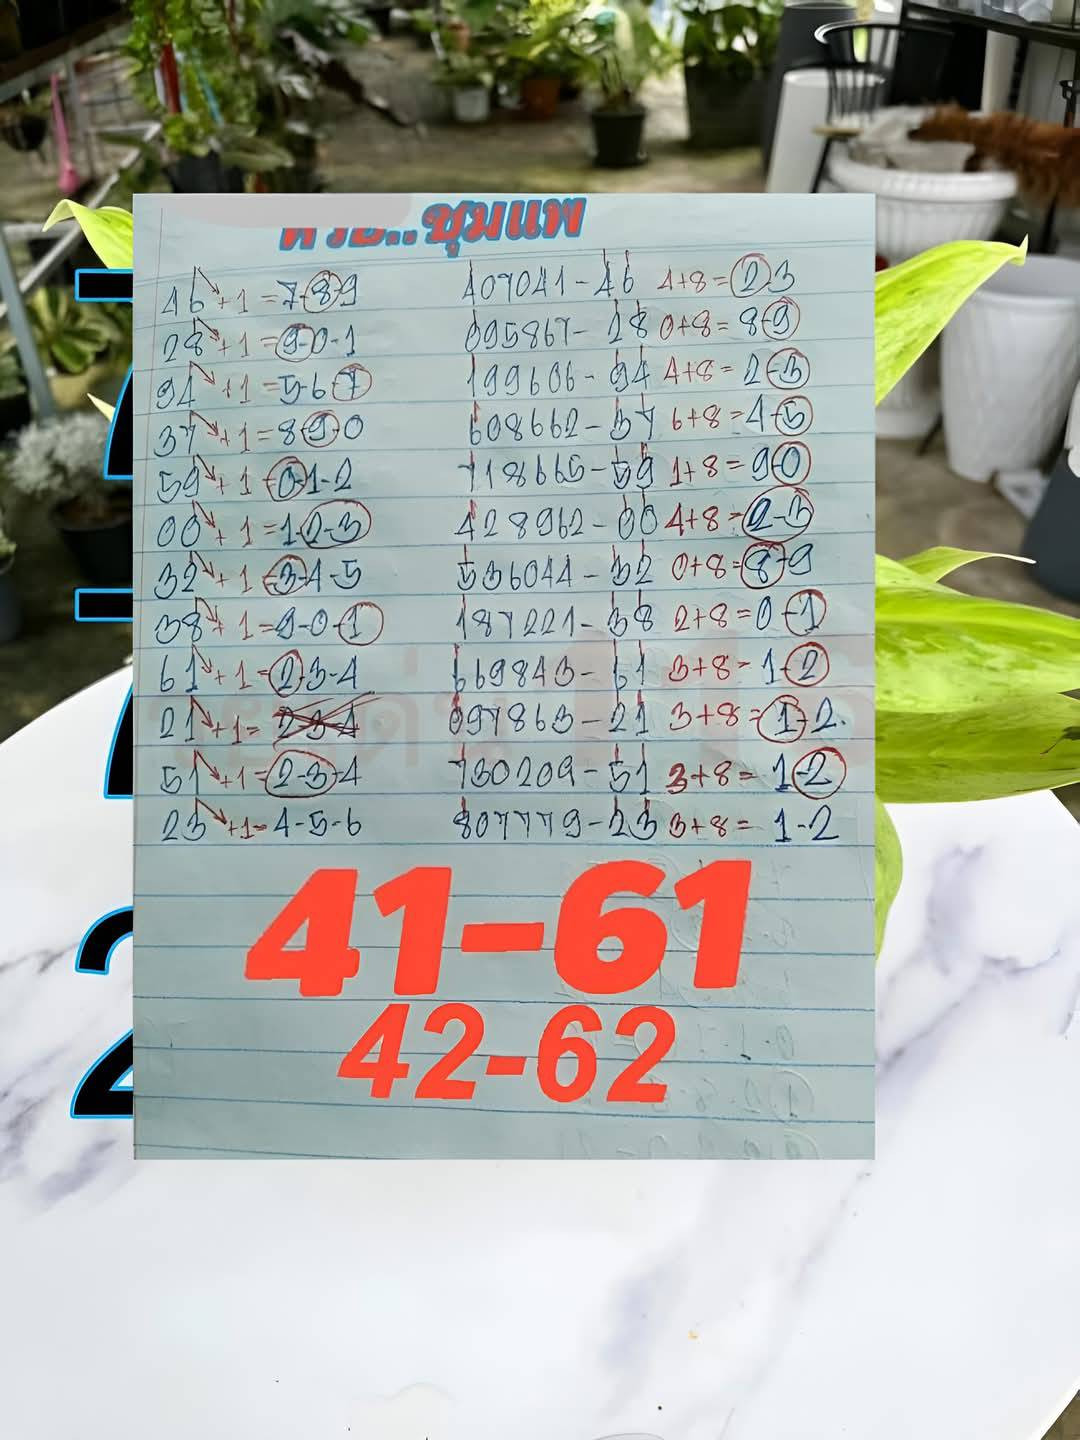 หวย..ชุมแพ
46 +1 = 7-8-9 407041-46 4+8= 2-3
28 +1 = 9-0-1 095867-28 0+8= 8-9
94 +1 = 5-6-7 199606-94 4+8= 2-3
37 +1 = 8-9-0 608662-37 6+8= 4-5
59 +1 = 0-1-2 718665-59 1+8= 9-0
00 +1 = 1-2-3 428962-00 4+8= 2-3
32 +1 = 3-4-5 536044-32 0+8= 8-9
38 +1 = 9-0-1 187221-38 2+8= 0-1
61 +1 = 2-3-4 669843-61 3+8= 1-2
21 +1 = 2-3-4 097863-21 3+8= 1-2.
51 +1 = 2-3-4 730209-51 3+8= 1-2
23 +1= 4-5-6 807779-23 3+8= 1-2
41-61
42-62